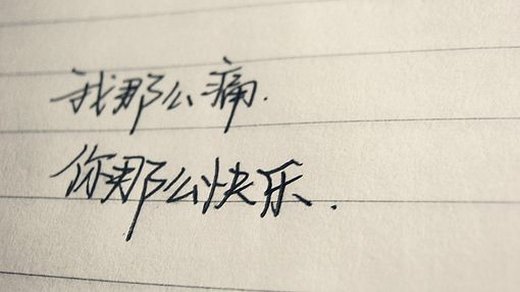 我那么痛.
你那么快乐.